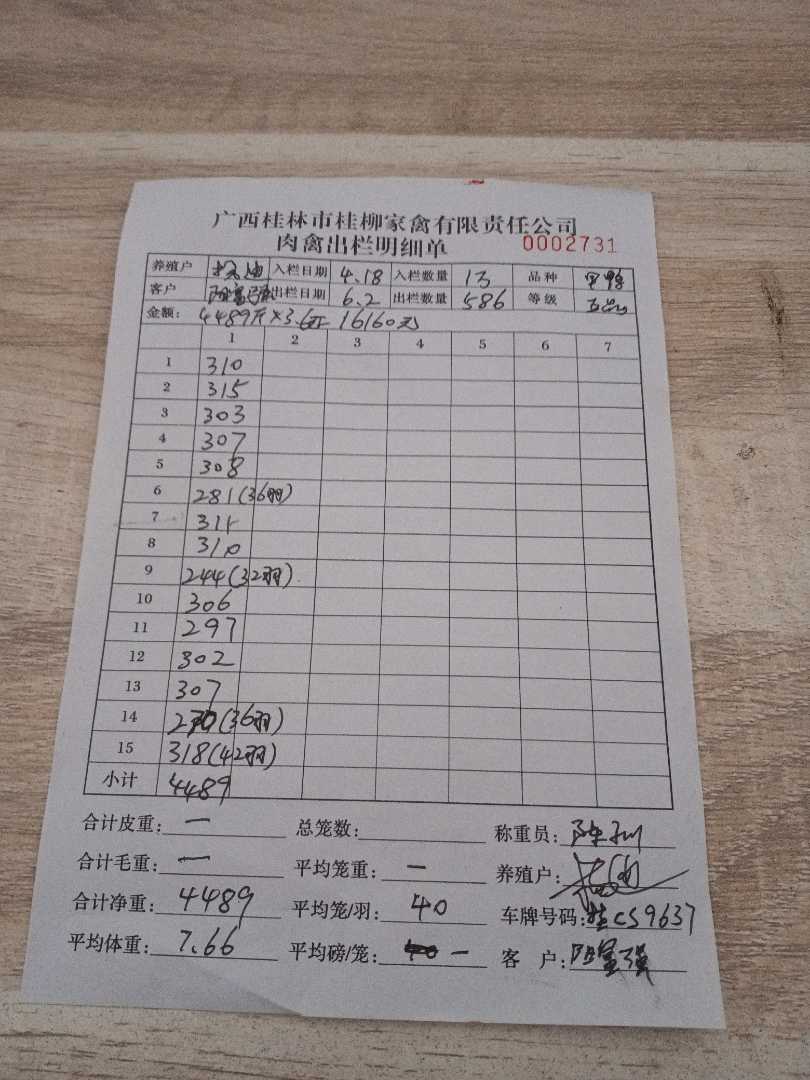 广西桂林市桂柳家禽有限责任公司
肉禽出栏明细单 0002731
养殖户 入栏日期 4.18 入栏数量 13 品种
客户 出栏日期 6.2 出栏数量 586 等级
金额: 4489斤×3.6元 16160元
1 2 3 4 5 6 7
1 310
2 315
3 303
4 307
5 308
6 281(36羽)
7 311
8 310
9 244(32羽)
10 306
11 297
12 302
13 307
14 270(36羽)
15 318(42羽)
小计 4489
合计皮重: 一 总笼数: 称重员:
合计毛重: 一 平均笼重: 一 养殖户:
合计净重: 4489 平均笼/羽: 40 车牌号码: 桂CS9637
平均体重: 7.66 平均磅/笼: 一 客户: